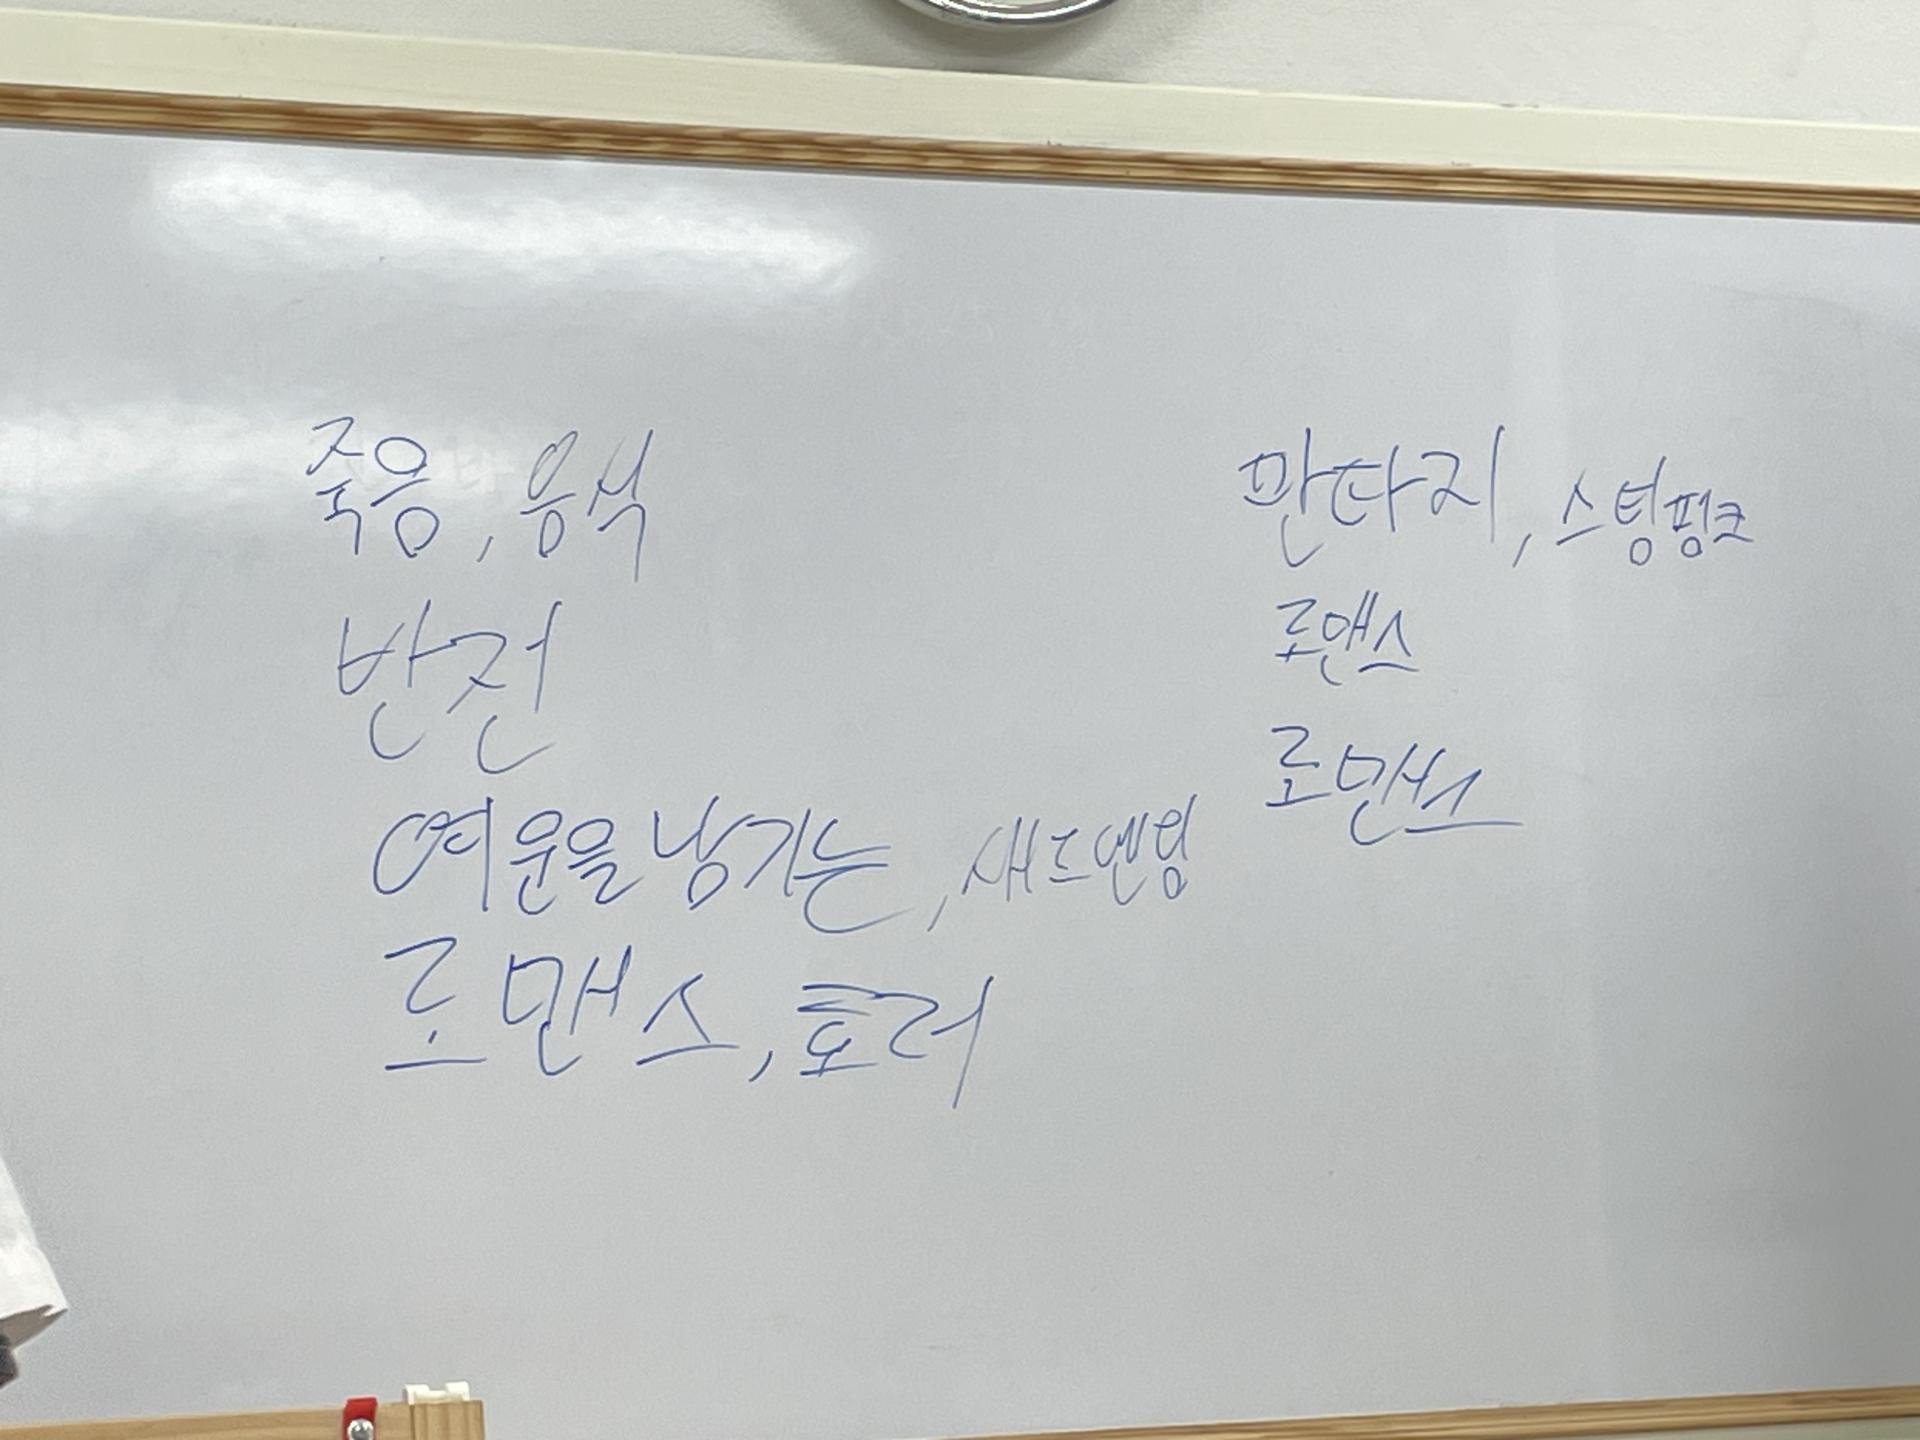 죽음, 음식
반전
여운을 남기는, 새드엔딩
로맨스, 호러
판타지, 스팀펑크
로맨스
로맨스